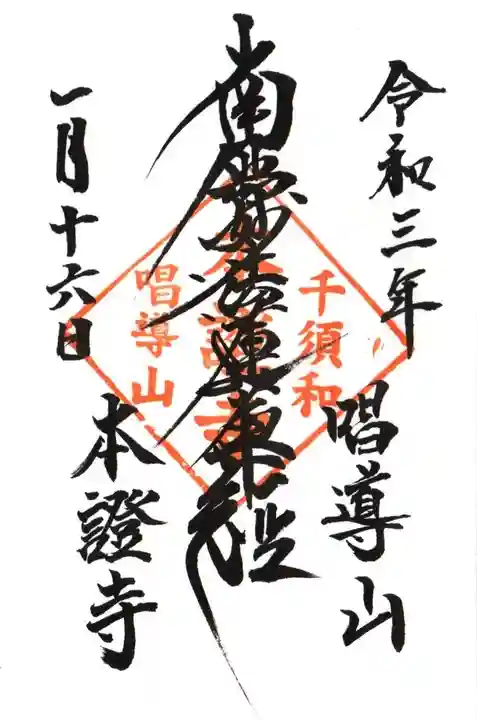 令和三年
唱導山
南無妙法蓮華経
一月十六日
本證寺
千須和
本證寺
唱導山